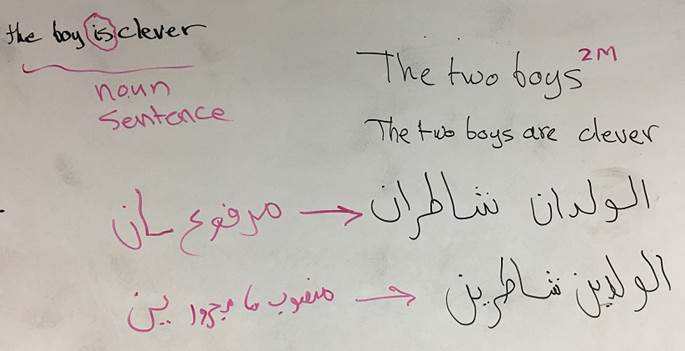 the boy is clever
noun
Sentence
The two boys 2M
The two boys are clever
الولدان شاطران ← مرفوع ـان
الولدين شاطرين ← منصوب مجرور ـين